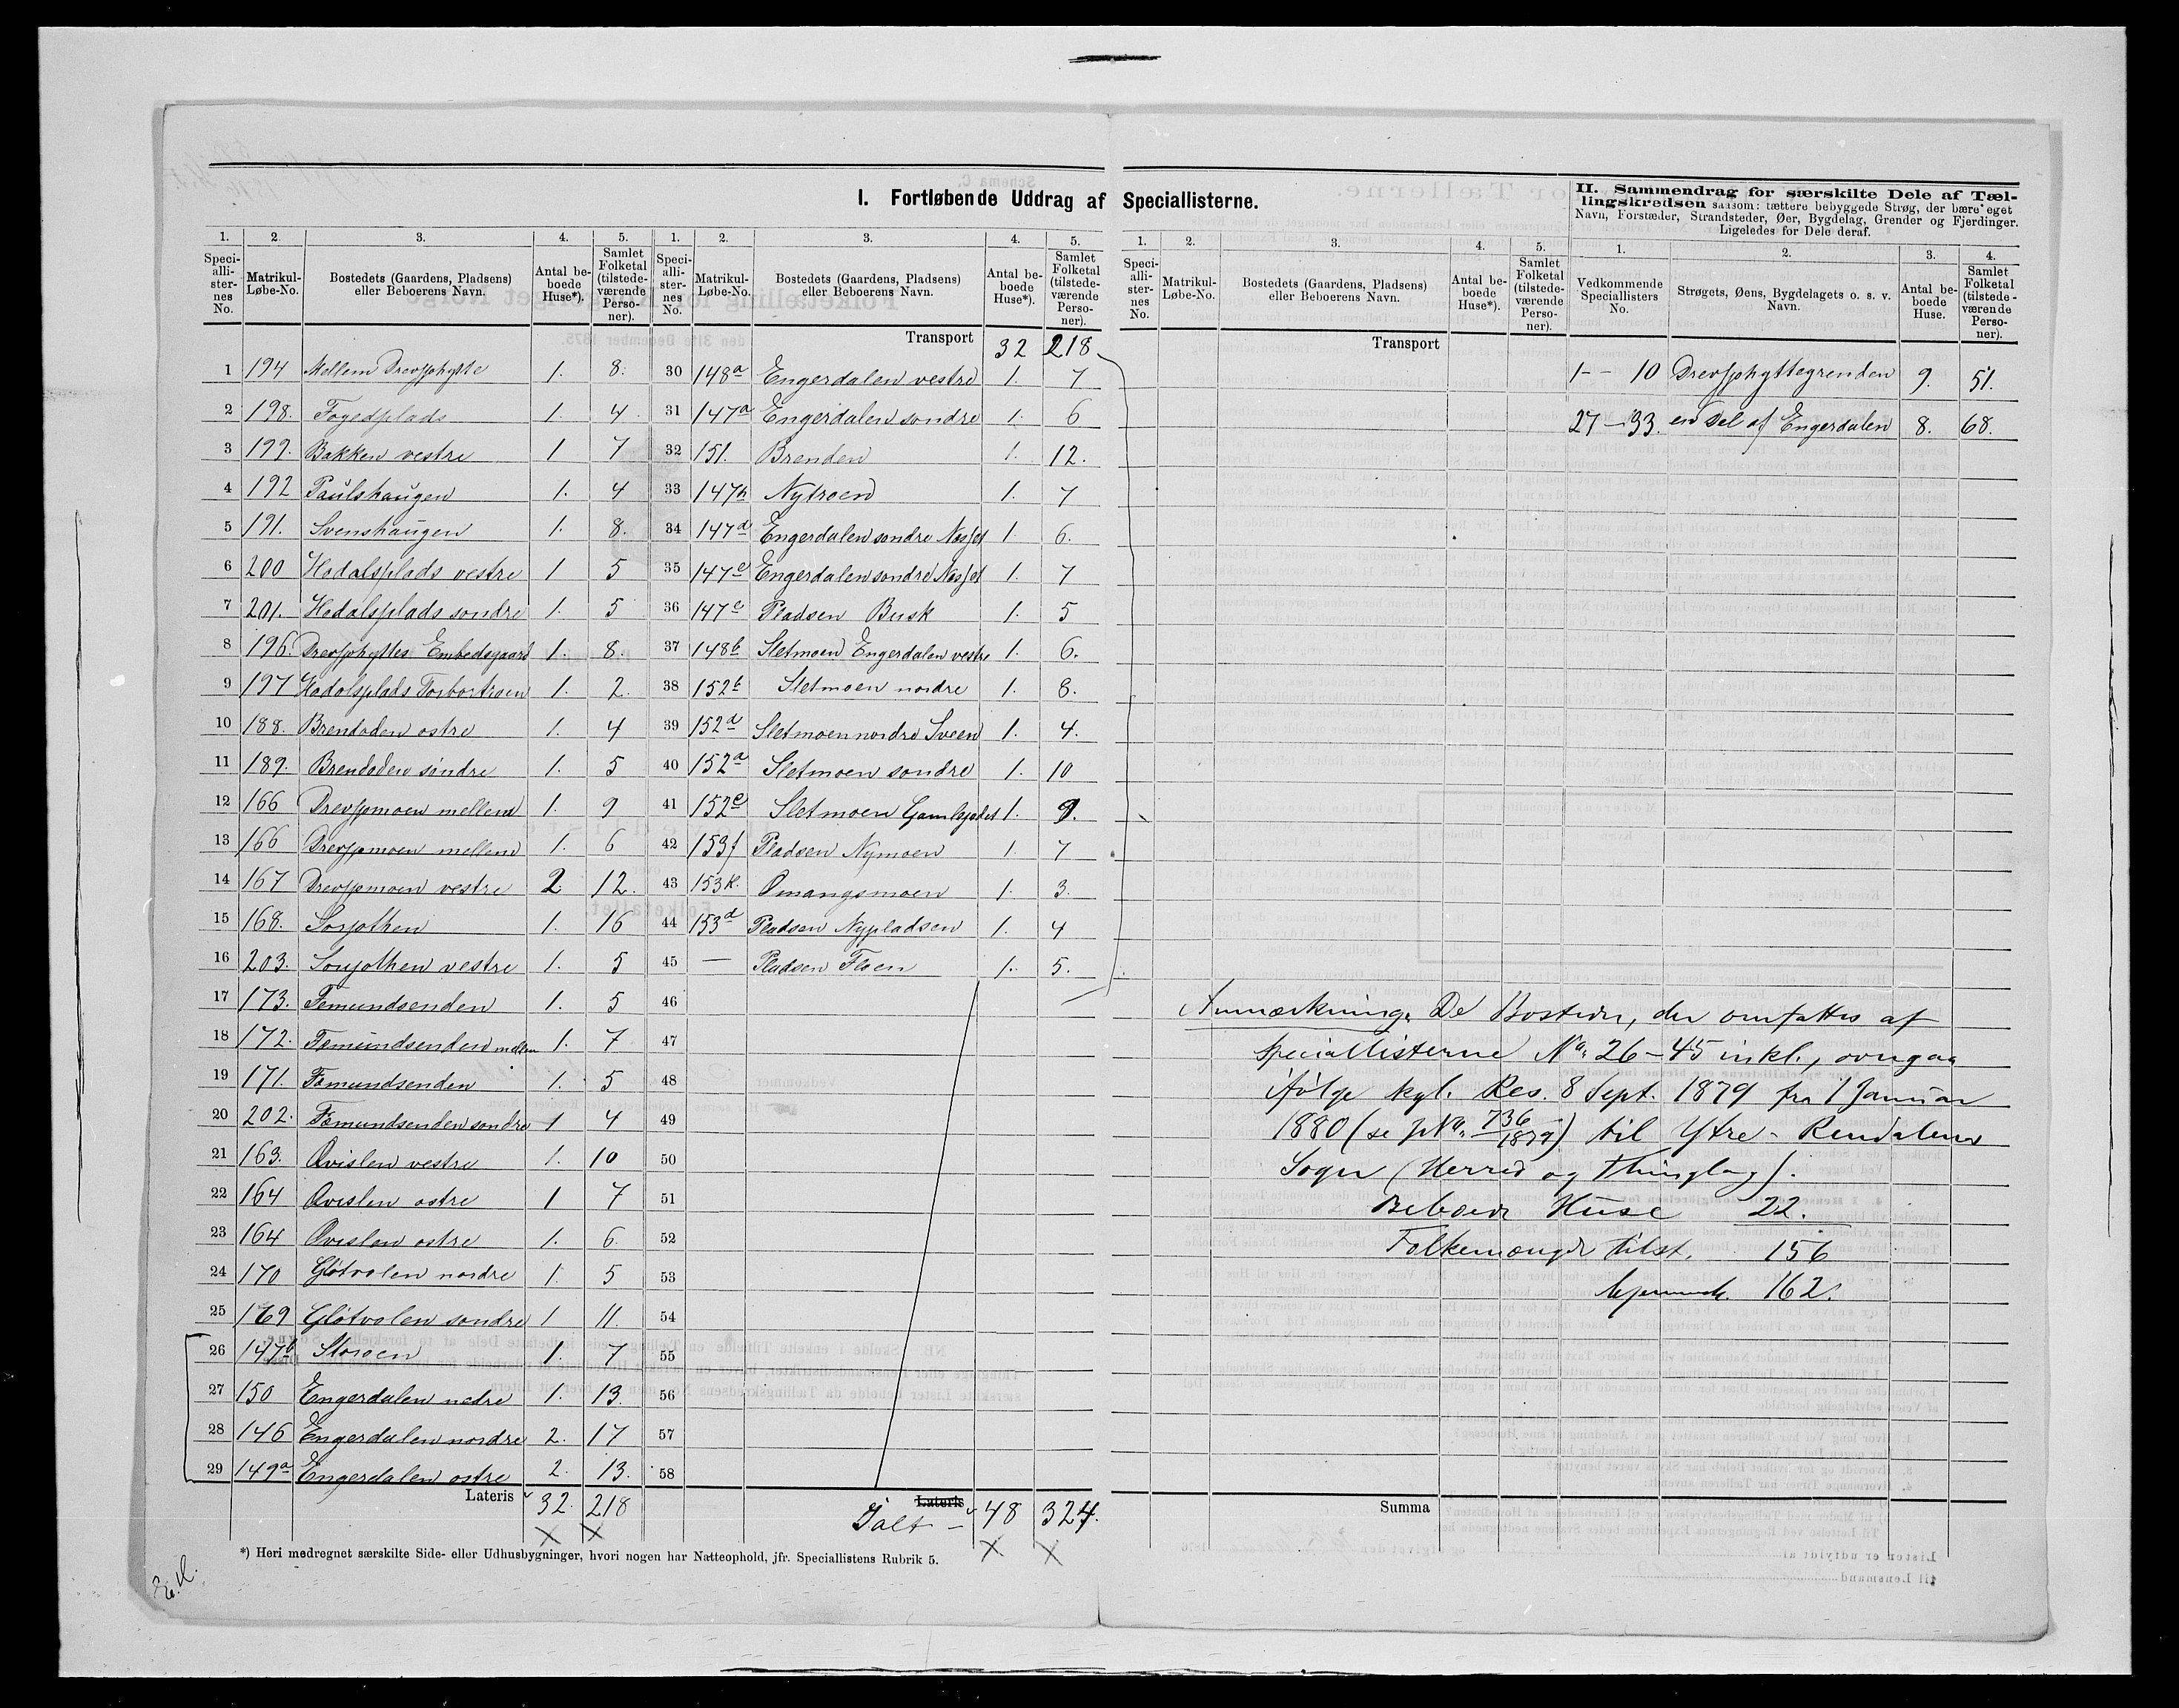 I. Fortløbende Uddrag af Speciallisterne.
II. Sammendrag for særskilte Dele af Tæl-
lingskredsen saasom: tættere bebyggede Strøg, der bære eget
Navn, Forstæder, Strandsteder, Øer, Bygdelag, Grender og Fjerdinger.
Ligeledes for Dele deraf.
1. 2. 3. 4. 5. 1. 2. 3. 4. 5. 1. 2. 3. 4. 5. 1. 2. 3. 4.
Speci-alli-ster-nes No. Matrikul-Løbe-No. Bostedets (Gaardens, Pladsens) eller Beboerens Navn. Antal be-boede Huse*). Samlet Folketal (tilstede-værende Perso-ner).
Speci-alli-ster-nes No. Matrikul-Løbe-No. Bostedets (Gaardens, Pladsens) eller Beboerens Navn. Antal be-boede Huse*). Samlet Folketal (tilstede-værende Perso-ner).
Speci-alli-ster-nes No. Matrikul-Løbe-No. Bostedets (Gaardens, Pladsens) eller Beboerens Navn. Antal be-boede Huse*). Samlet Folketal (tilstede-værende Perso-ner).
Vedkommende Speciallisters No. Strøgets, Øens, Bygdelagets o. s. v. Navn. Antal be-boede Huse. Samlet Folketal (tilstede-værende Perso-ner).
1 194 Mellem Drevsjøhytte 1. 8.
2 198. Fogedplads 1. 4.
3 199. Bakken vestre 1 7
4 192 Paulshaugen 1. 4
5 191. Svenshaugen 1. 8.
6 200 Hodalsplads vestre 1 5
7 201. Hodalsplads søndre 1. 5
8 196. Drevsjøhyttes Embedsgaard 1. 8.
9 197 Hodolsplads Torbortroen 1. 2.
10 188. Brendoden østre 1. 4
11 189. Brendoden søndre 1. 5
12 166 Drevsjømoen mellem 1. 9
13 166 Drevsjømoen mellem 1. 6
14 167 Drevsjømoen vestre 2 12.
15 168. Sorjothen 1. 16
16 203. Sorjothen vestre 1. 5
17 173. Femundsenden 1. 5
18 172. Fæmundsenden mellem 1. 7
19 171. Fæmundsenden 1. 5
20 202. Fæmundsenden søndre 1 4
21 163. Qvislen vestre 1. 10
22 164 Qvislen østre 1 7
23 164 Qvislen østre 1. 6.
24 170 Gløtvolen nordre 1. 5
25 169 Gløtvolen søndre 1 11.
26 147b Storoen 1. 7
27 150 Engerdalen nedre 1. 13.
28 146 Engerdalen nordre 2. 17
29 149a Engerdalen østre 2. 13.
Lateris 32. 218
Transport 32 218
30 148a Engerdalen vestre 1. 7
31 147a Engerdalen søndre 1. 6
32 151. Brenden 1. 12.
33 147h Nytroen 1. 7
34 147d Engerdalen søndre Næsset 1. 6.
35 147c Engerdalen søndre Næsset 1. 7
36 147e Pladsen Busk 1. 5
37 148b Sletmoen Engerdalen vestre 1. 6.
38 152b Sletmoen nordre 1. 8.
39 152d Sletmoen nordre Sveen 1. 4.
40 152a Sletmoen søndre 1. 10
41 152e Sletmoen Gamlejordet 1. 9.
42 153f Pladsen Nymoen 1. 7
43 153k. Omangsmoen 1. 3.
44 153d Pladsen Nypladsen 1. 4
45 — Pladsen Floen 1. 5.
46
47
48
49
50
51
52
53
54
55
56
57
58
Lateris
Ialt — 48 324.
Transport
1 - - 10 Drevsjøhyttegrenden 9. 51.
27 - 33. en Del af Engerdalen 8. 68.
Anmærkning. De Bosteder, der omfattes af
Speciallisterne No. 26-45 inkl., overgaa
ifølge kgl. Res. 8 Sept. 1879 fra 1 Januar
1880 (se JNo. 736/1879) til Ytre-Rendalens
Sogn (Herred og Thinglag).
Beboede Huse 22.
Folkemængde tilst. 156
hjemmeh. 162.
Summa
*) Heri medregnet særskilte Side- eller Udhusbygninger, hvori nogen har Natteophold, jfr. Speciallistens Rubrik 5.